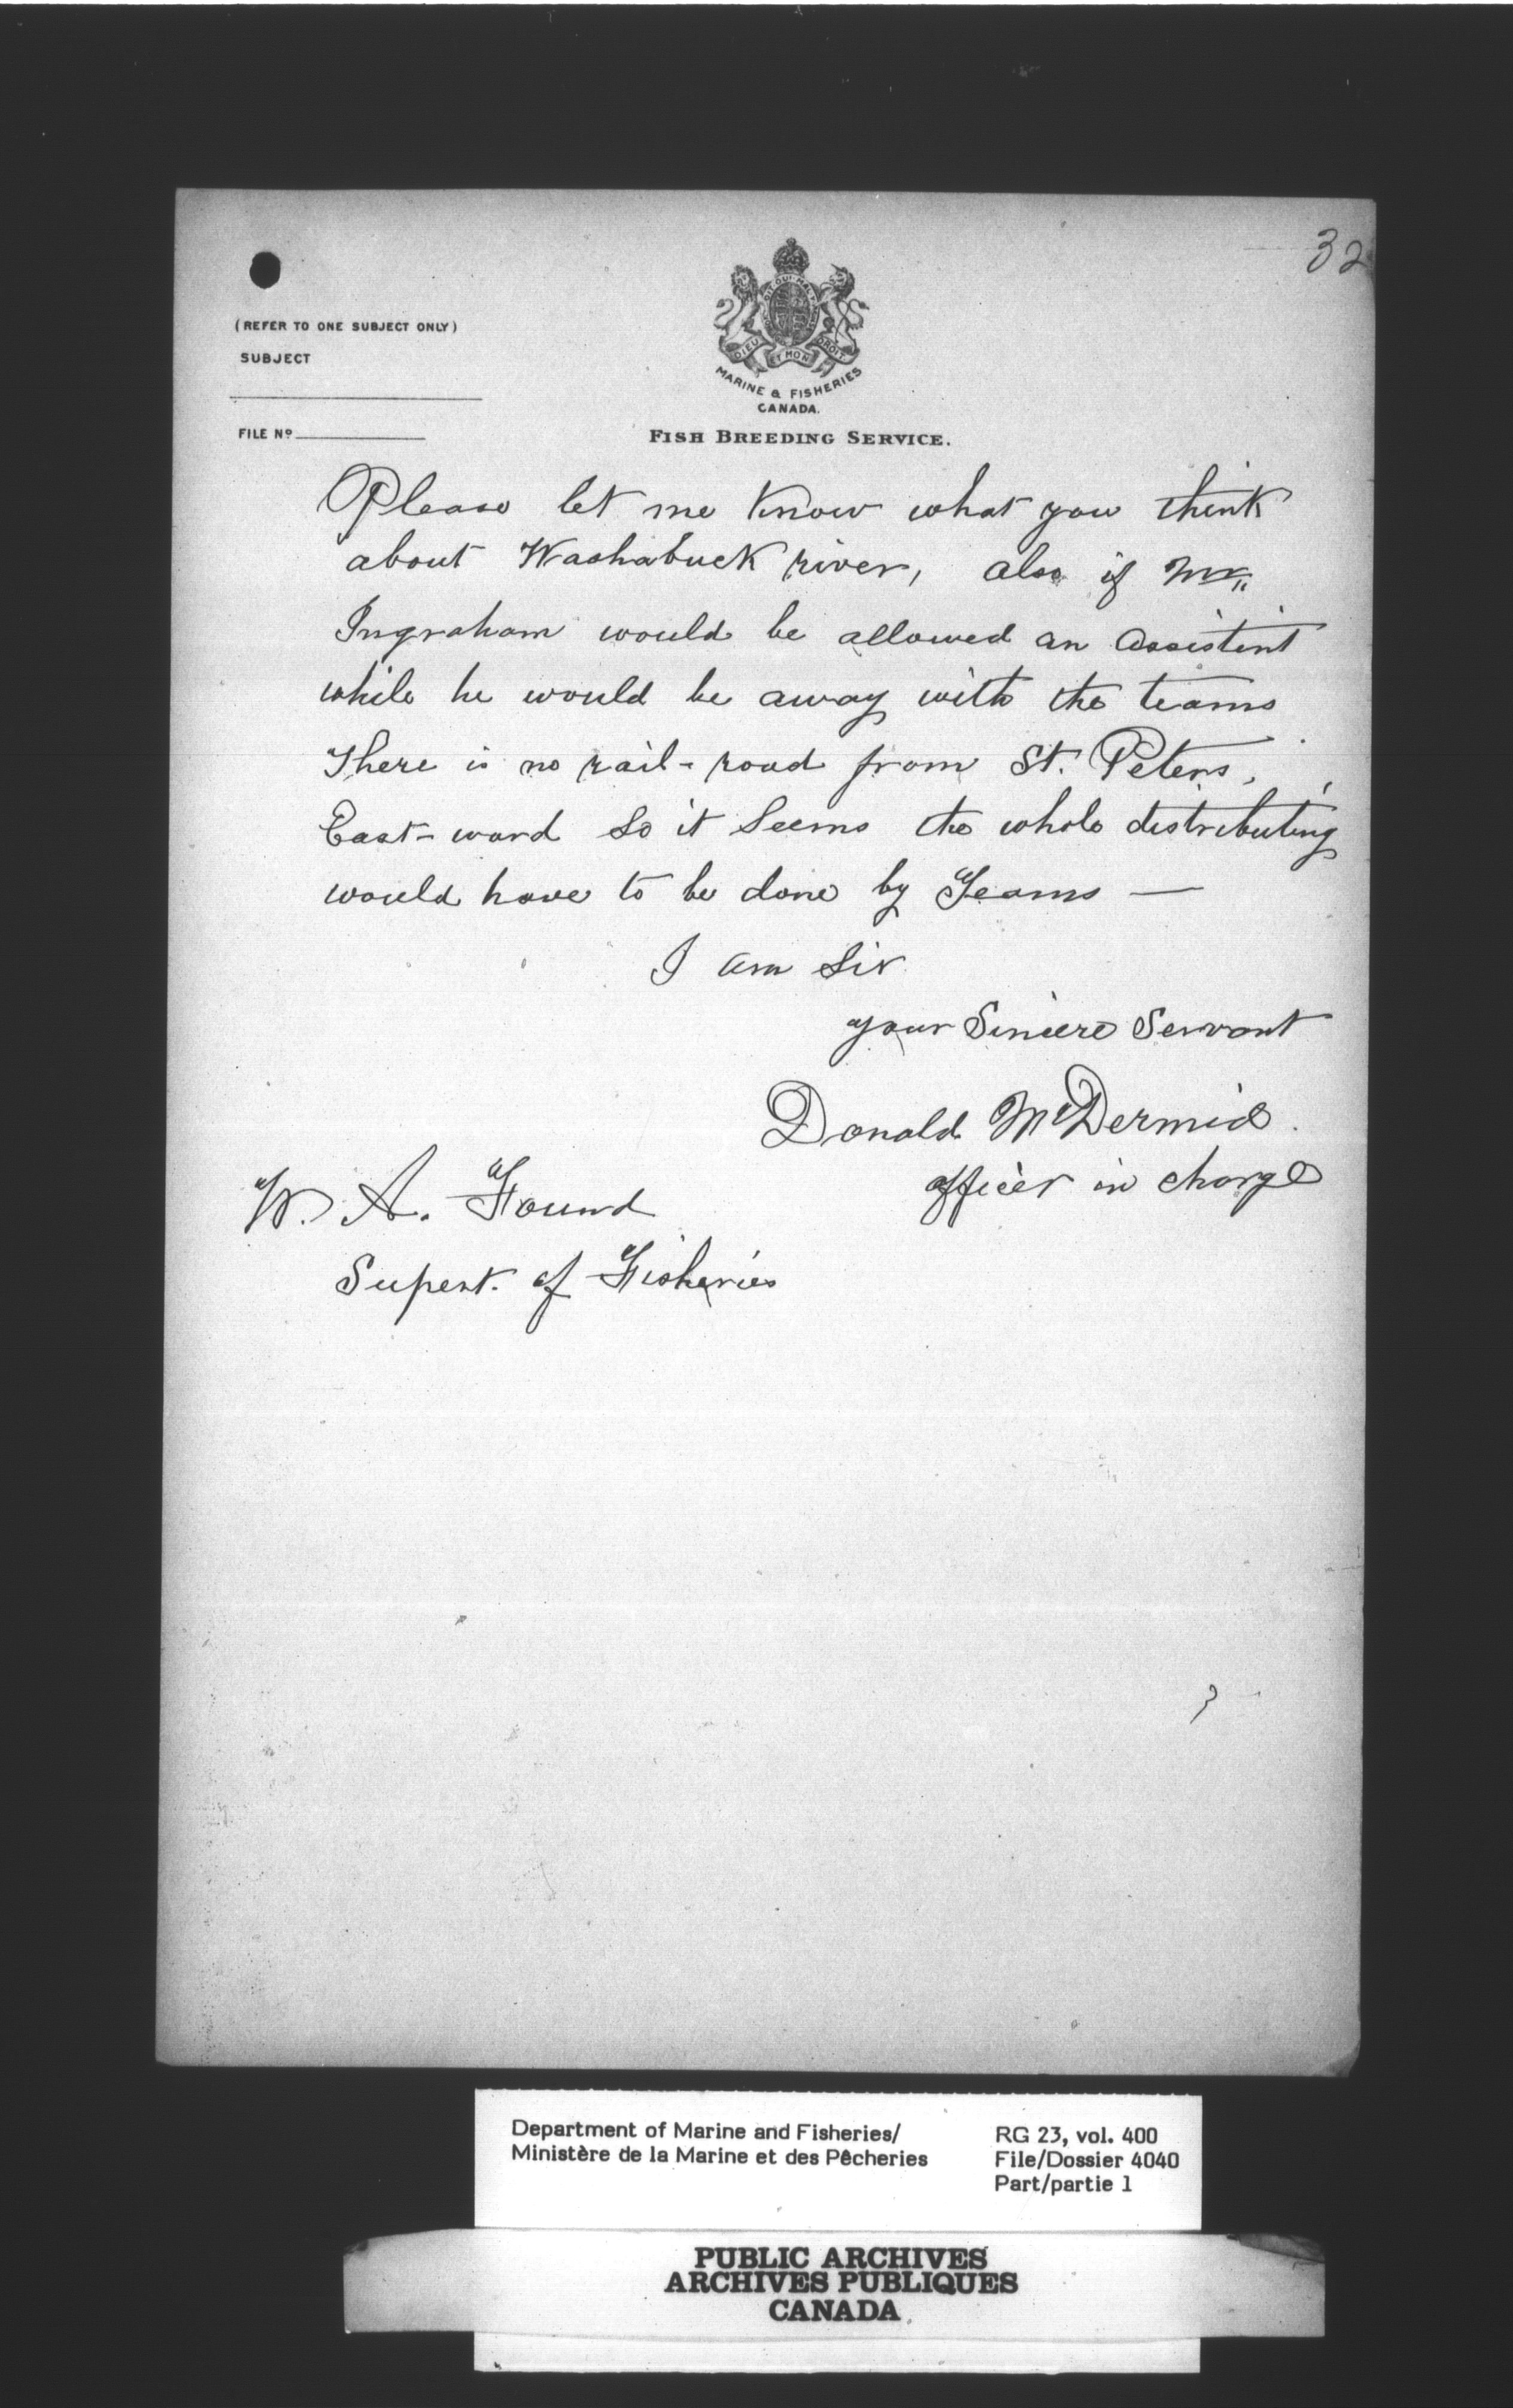 32
(REFER TO ONE SUBJECT ONLY)
SUBJECT
FILE No
DIEU ET MON DROIT
MARINE & FISHERIES
CANADA.
FISH BREEDING SERVICE.
Please let me know what you think
about Washabuck river, also if Mr
Ingraham would be allowed an assistint
while he would be away with the teams
There is no rail-road from St. Peters,
East-ward so it seems the whole distributing
would have to be done by Teams —
I am Sir
your Sincere Servant
Donald McDermid.
officer in charge
W. A. Found
Supent. of Fisheries
Department of Marine and Fisheries/
Ministère de la Marine et des Pêcheries
RG 23, vol. 400
File/Dossier 4040
Part/partie 1
PUBLIC ARCHIVES
ARCHIVES PUBLIQUES
CANADA